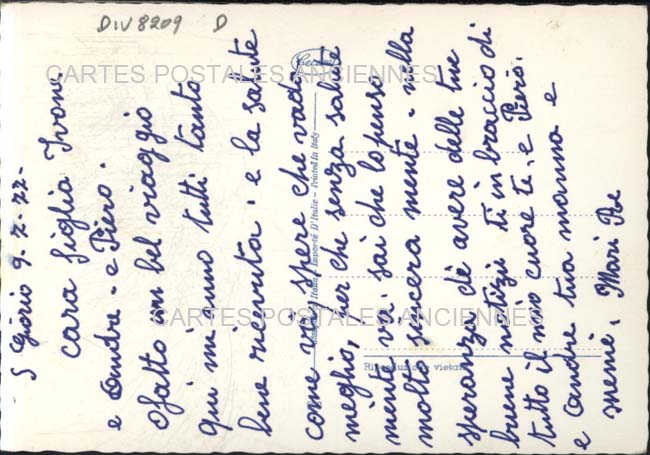 DIV8209 D
CARTES POSTALES ANCIENNES
CARTES POSTALES ANCIENNES
S Giorio 9-7-72-
cara figlia Ivone
e Andre - e Piero.
ofatto un bel viaggio
qui mi anno tutti tanto
bene ricevuta. e la salute
come vai spere che vada
meglio, per che senza salute
niente va. sai che lo penso
molto sincera mente - nella
speranza dè avere delle tue
buene notizi ti in braccio di
tutto il mio cuore te, e Piero.
e Andre tua mamma e
meme. Mari Rse
Importé D'Italie - Printed in Italy
Riproduzione vietata